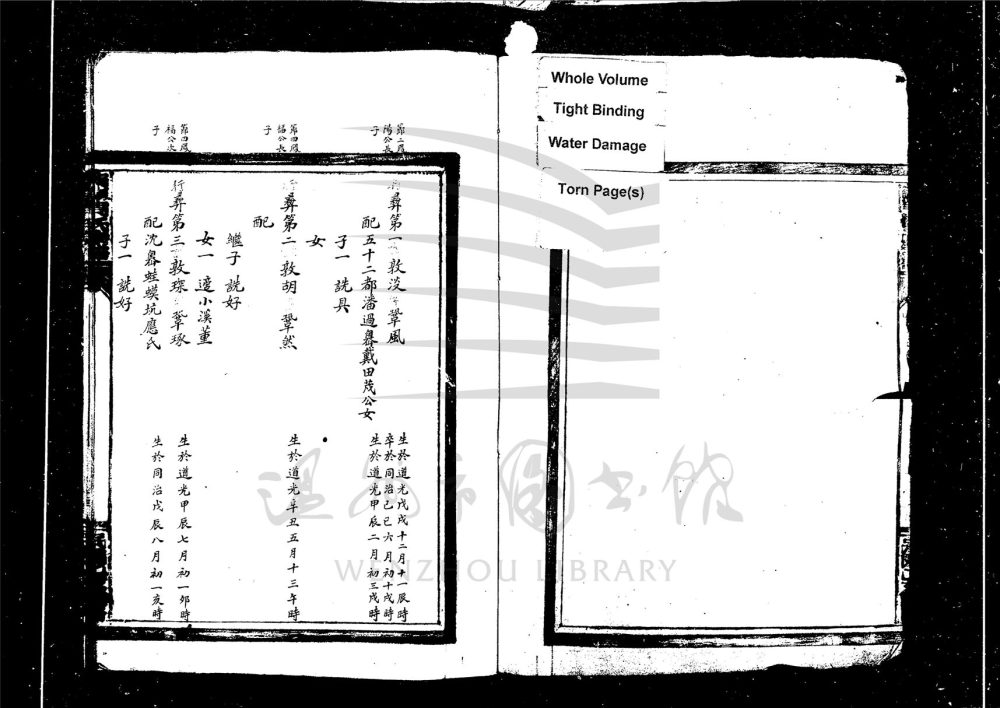 Whole Volume
Tight Binding
Water Damage
Torn Page(s)
第二房
陽公長
子
行彛第一 敦沒 鞏風
生於道光戊戌十二月十一辰時
卒於同治己巳六月初十戌時
配五十二都潘過嶴戴田茂公女
生於道光甲辰二月初三戌時
子一 詵具
女
第四房
福公長
子
行彛第二 敦胡 鞏然
生於道光辛丑五月十三午時
配
繼子 詵好
女一 適小溪董
第四房
福公次
子
行彛第三 敦琛 鞏琢
生於道光甲辰七月初一卯時
配沈嶴蛙蟆坑應氏
生於同治戊辰八月初一亥時
子一 詵好
溫州市圖書館
WENZHOU LIBRARY